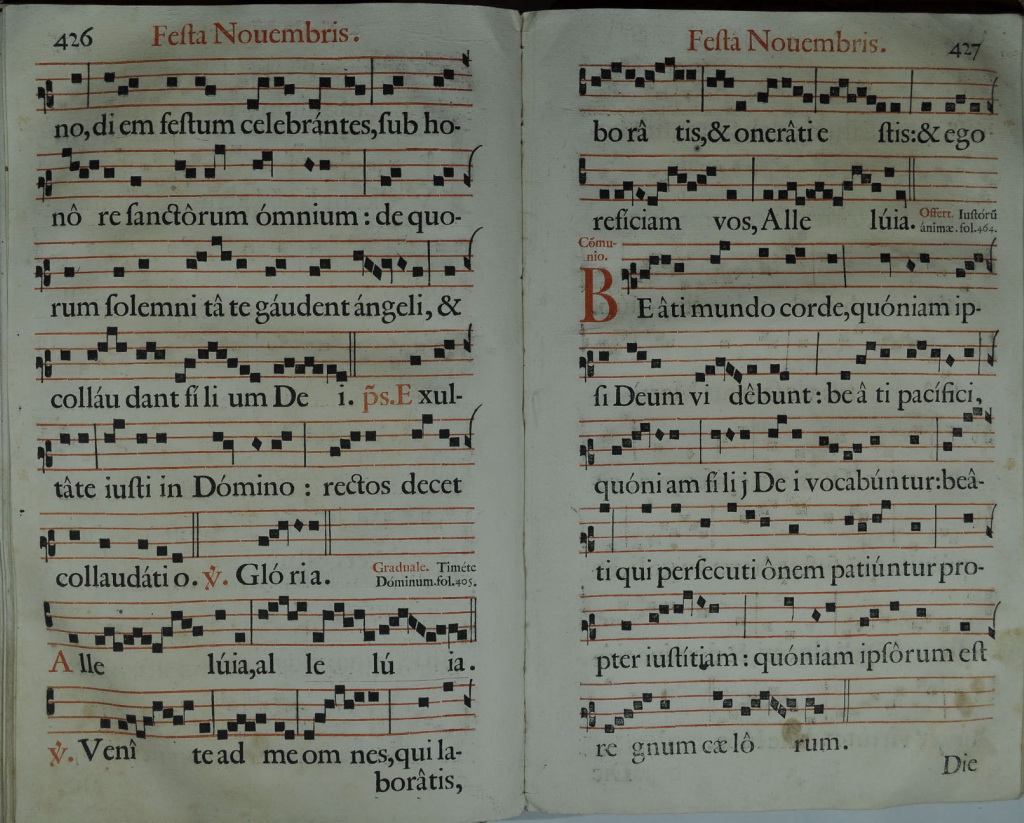 426 Feſta Nouembris.
no, di em feſtum celebrántes, ſub ho-
nô re ſanctôrum ómnium : de quo-
rum ſolemni tâ te gáudent ángeli, &
colláu dant fí li um De i. p̃s. E xul-
tâte iuſti in Dómino : rectos decet
collaudáti o. ℣. Gló ri a. Graduale. Timéte
Dóminum. fol. 405.
A lle lúia, al le lú ia.
℣. Venî te ad me om nes, qui la-
borâtis,
Feſta Nouembris. 427
bo râ tis, & onerâti e ſtis: & ego
refíciam vos, Alle lúia. Offert. Iuſtórũ
ánimæ. fol. 464.
Cõmu-
nio.
B E âti mundo corde, quóniam ip-
ſi Deum vi dêbunt : be â ti pacífici,
quóni am fi li j De i vocabúntur: beâ-
ti qui perſecuti ônem patiúntur pro-
pter iuſtítiam : quóniam ipſôrum eſt
re gnum cæ lô rum.
Die